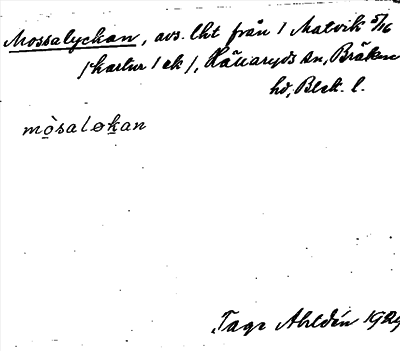 Mossalyckan, avs. lht från 1 Matvik 5/16
/kartur/ek/, Hällaryds sn, Bräkne
hd, Blek. l.
mo̠`saløk̠an
Tage Ahldén 1929